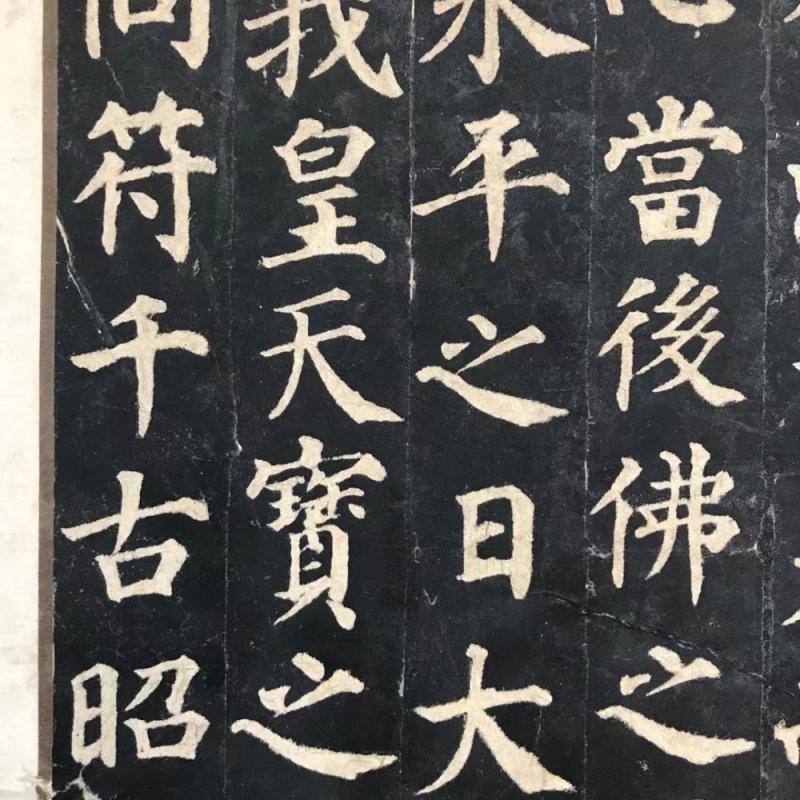 當後佛之
永平之日大
我皇天寶之
同符千古昭